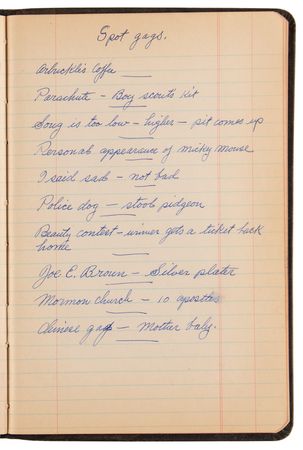 Spot gags.
Arbuckles Coffee
Parachute – Boy scouts kit
Song is too low – higher – pit comes up
Personal appearance of micky mouse
I said sad – not bad
Police dog – stool pidgeon
Beauty contest – winner gets a ticket back
home
Joe E. Brown – Silver plater
Mormon church – 10 apostles
Chinese gag – Mother baby.